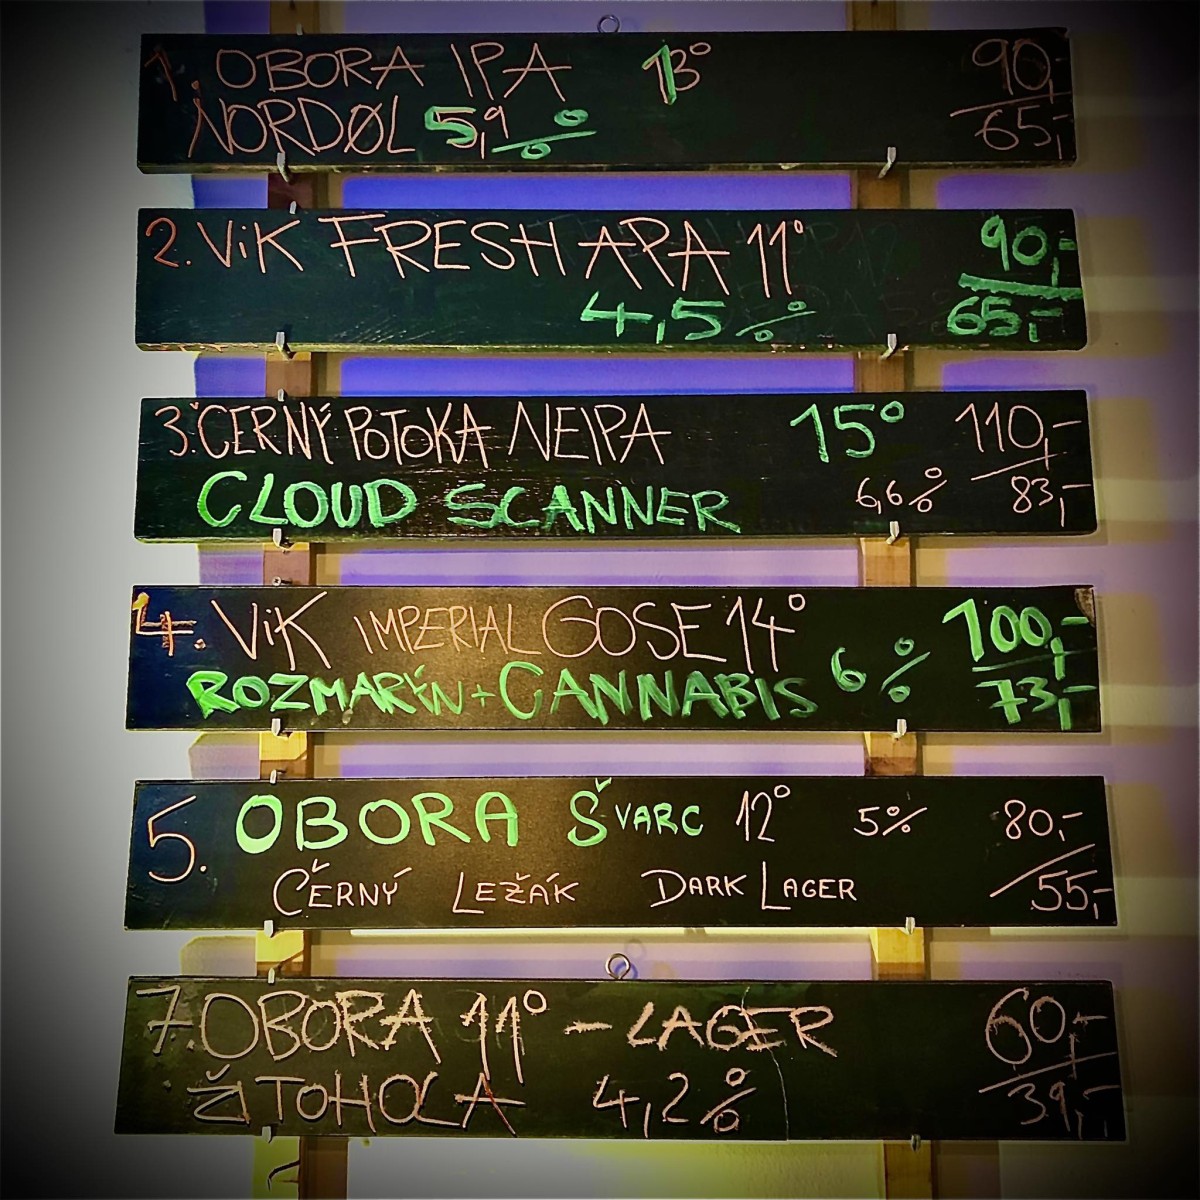 1. OBORA IPA 13° 90,-
NORDØL 5,9% 65,-
2. ViK FRESH APA 11° 90,-
4,5% 65,-
3. ČERNÝ POTOKA NEIPA 15° 110,-
CLOUD SCANNER 6,6% 83,-
4. ViK IMPERIAL GOSE 14° 100,-
ROZMARÝN + CANNABIS 6% 73,-
5. OBORA ŠVARC 12° 5% 80,-
ČERNÝ LEŽÁK DARK LAGER 55,-
7. OBORA 11° - LAGER 60,-
ŽITOHOLA 4,2% 39,-